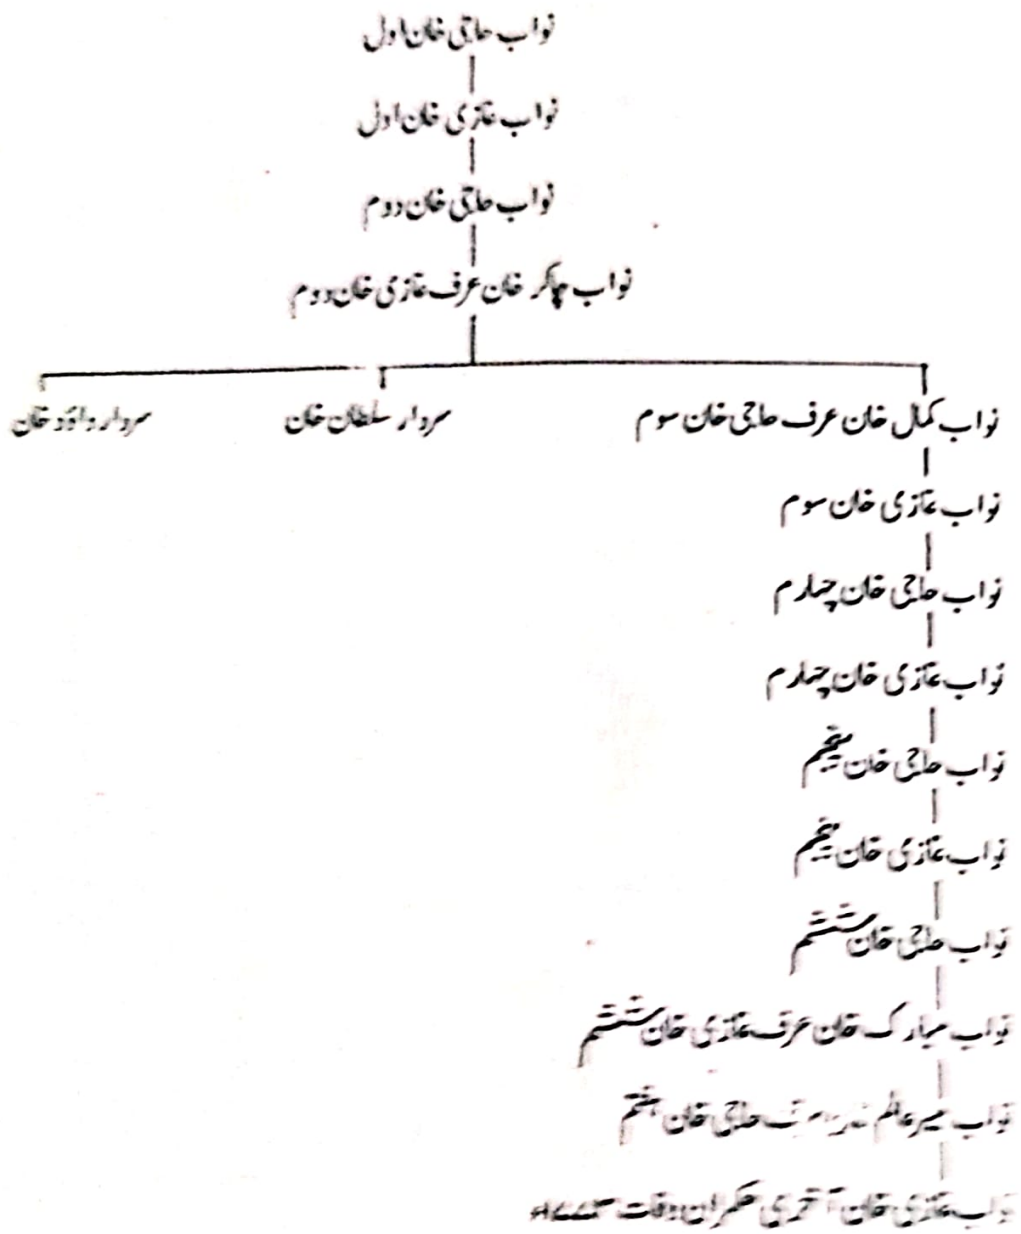 نواب حاجی خان اول
نواب غازی خان اول
نواب حاجی خان دوم
نواب چاکر خان عرف غازی خان دوم
نواب کمال خان عرف حاجی خان سوم
سردار سلطان خان
سردار داؤد خان
نواب غازی خان سوم
نواب حاجی خان چہارم
نواب غازی خان چہارم
نواب حاجی خان پنجم
نواب غازی خان پنجم
نواب حاجی خان ششم
نواب مبارک خان عرف غازی خان ششم
نواب میر عالم عرف حاجی خان ہفتم
نواب غازی خان آخری حکمران وفات